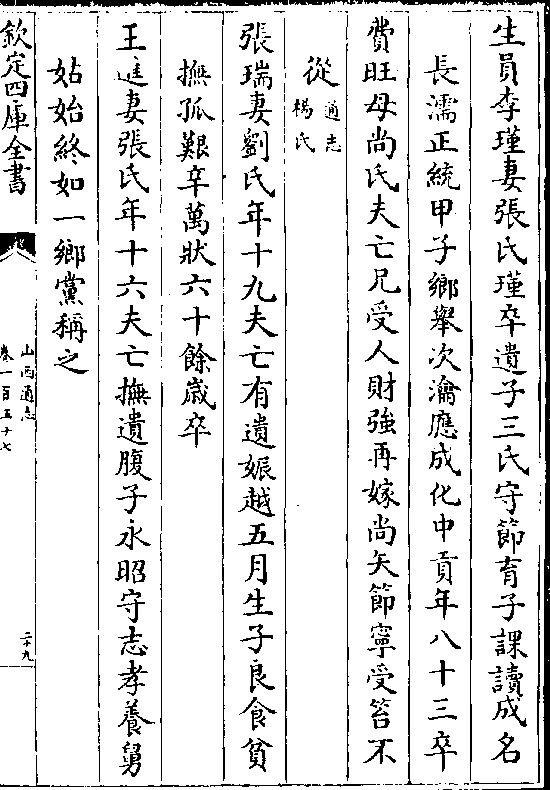 生員李瑾妻張氏瑾卒遺子三氏守節育子課讀成名
長濡正統甲子鄉舉次瀹應成化中貢年八十三卒
費旺母尚氏夫亡兄受人財強再嫁尚矢節寧受笞不
從通志楊氏
張瑞妻劉氏年十九夫亡有遺娠越五月生子良食貧
撫孤艱辛萬狀六十餘歲卒
王進妻張氏年十六夫亡撫遺腹子永昭守志孝養舅
姑始終如一鄉黨稱之
欽定四庫全書
山西通志
卷一百五十七
二十九